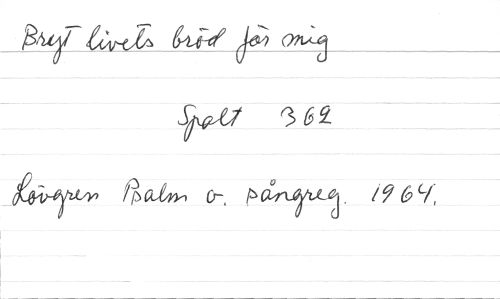 Bryt livets bröd för mig
Spalt 362
Lövgren Psalm o. sångreg. 1964.